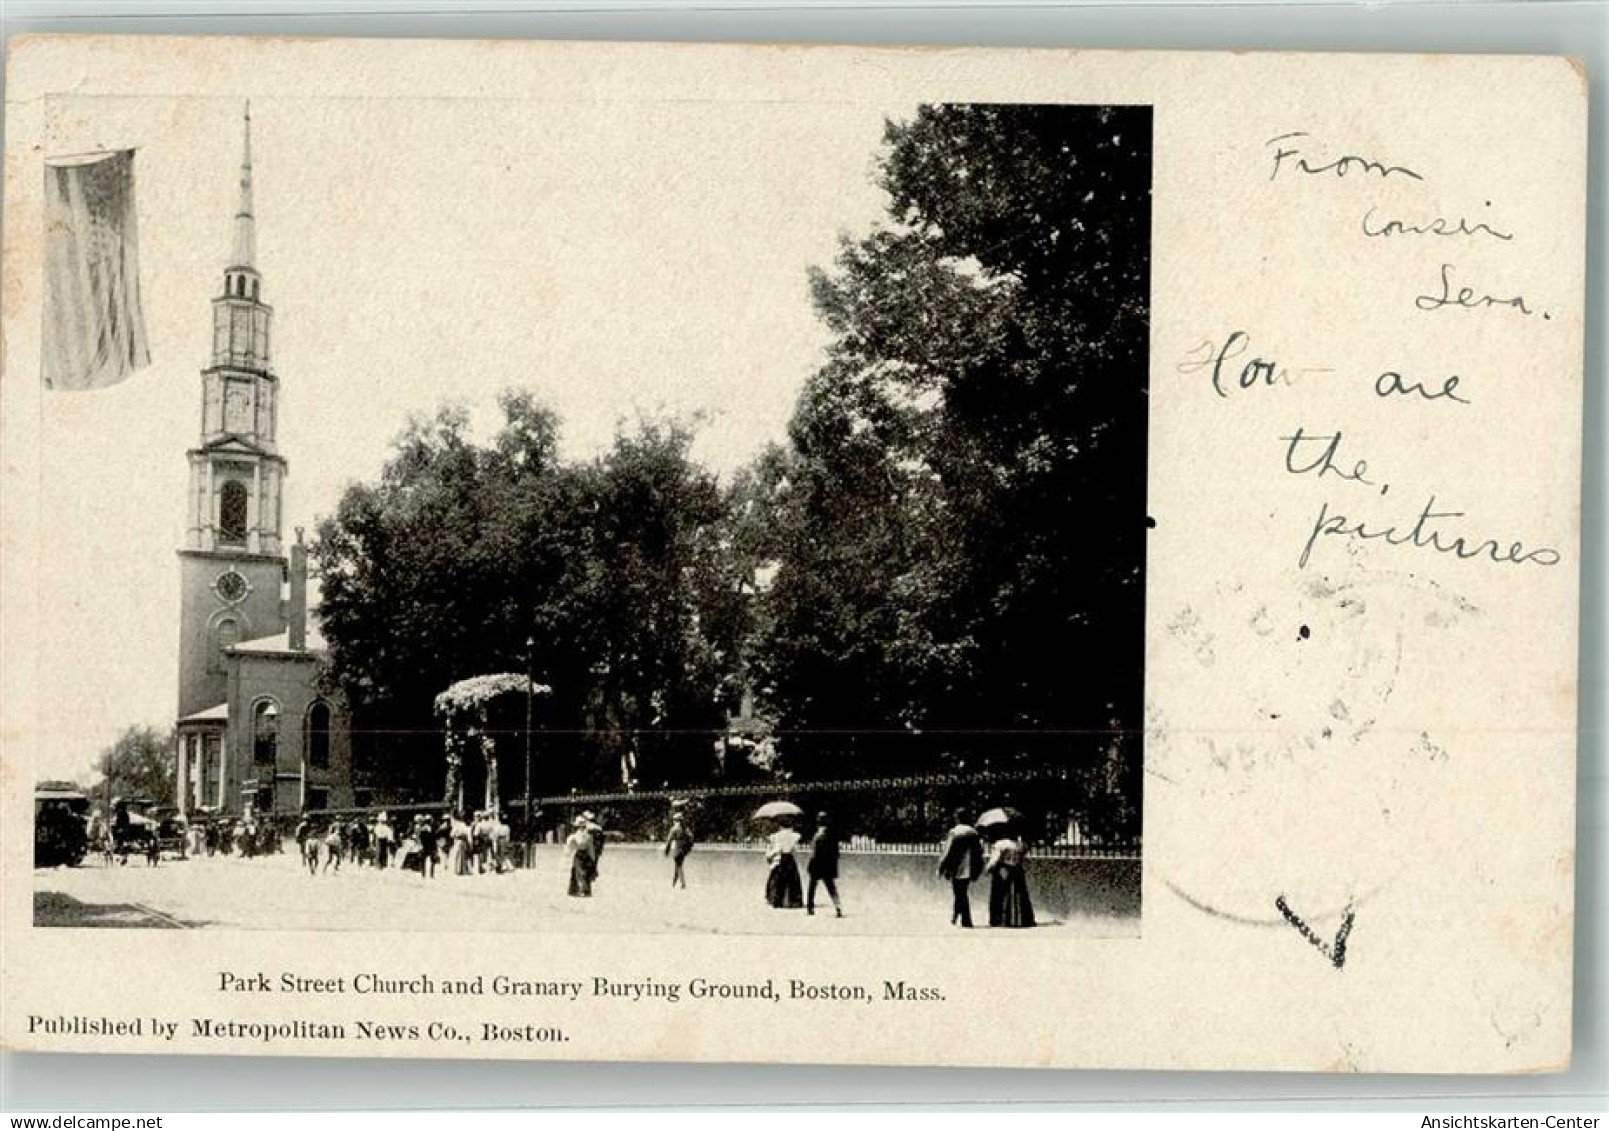 From
cousin
Lena.
How are
the,
pictures
Park Street Church and Granary Burying Ground, Boston, Mass.
Published by Metropolitan News Co., Boston.
www.delcampe.net
Ansichtskarten-Center